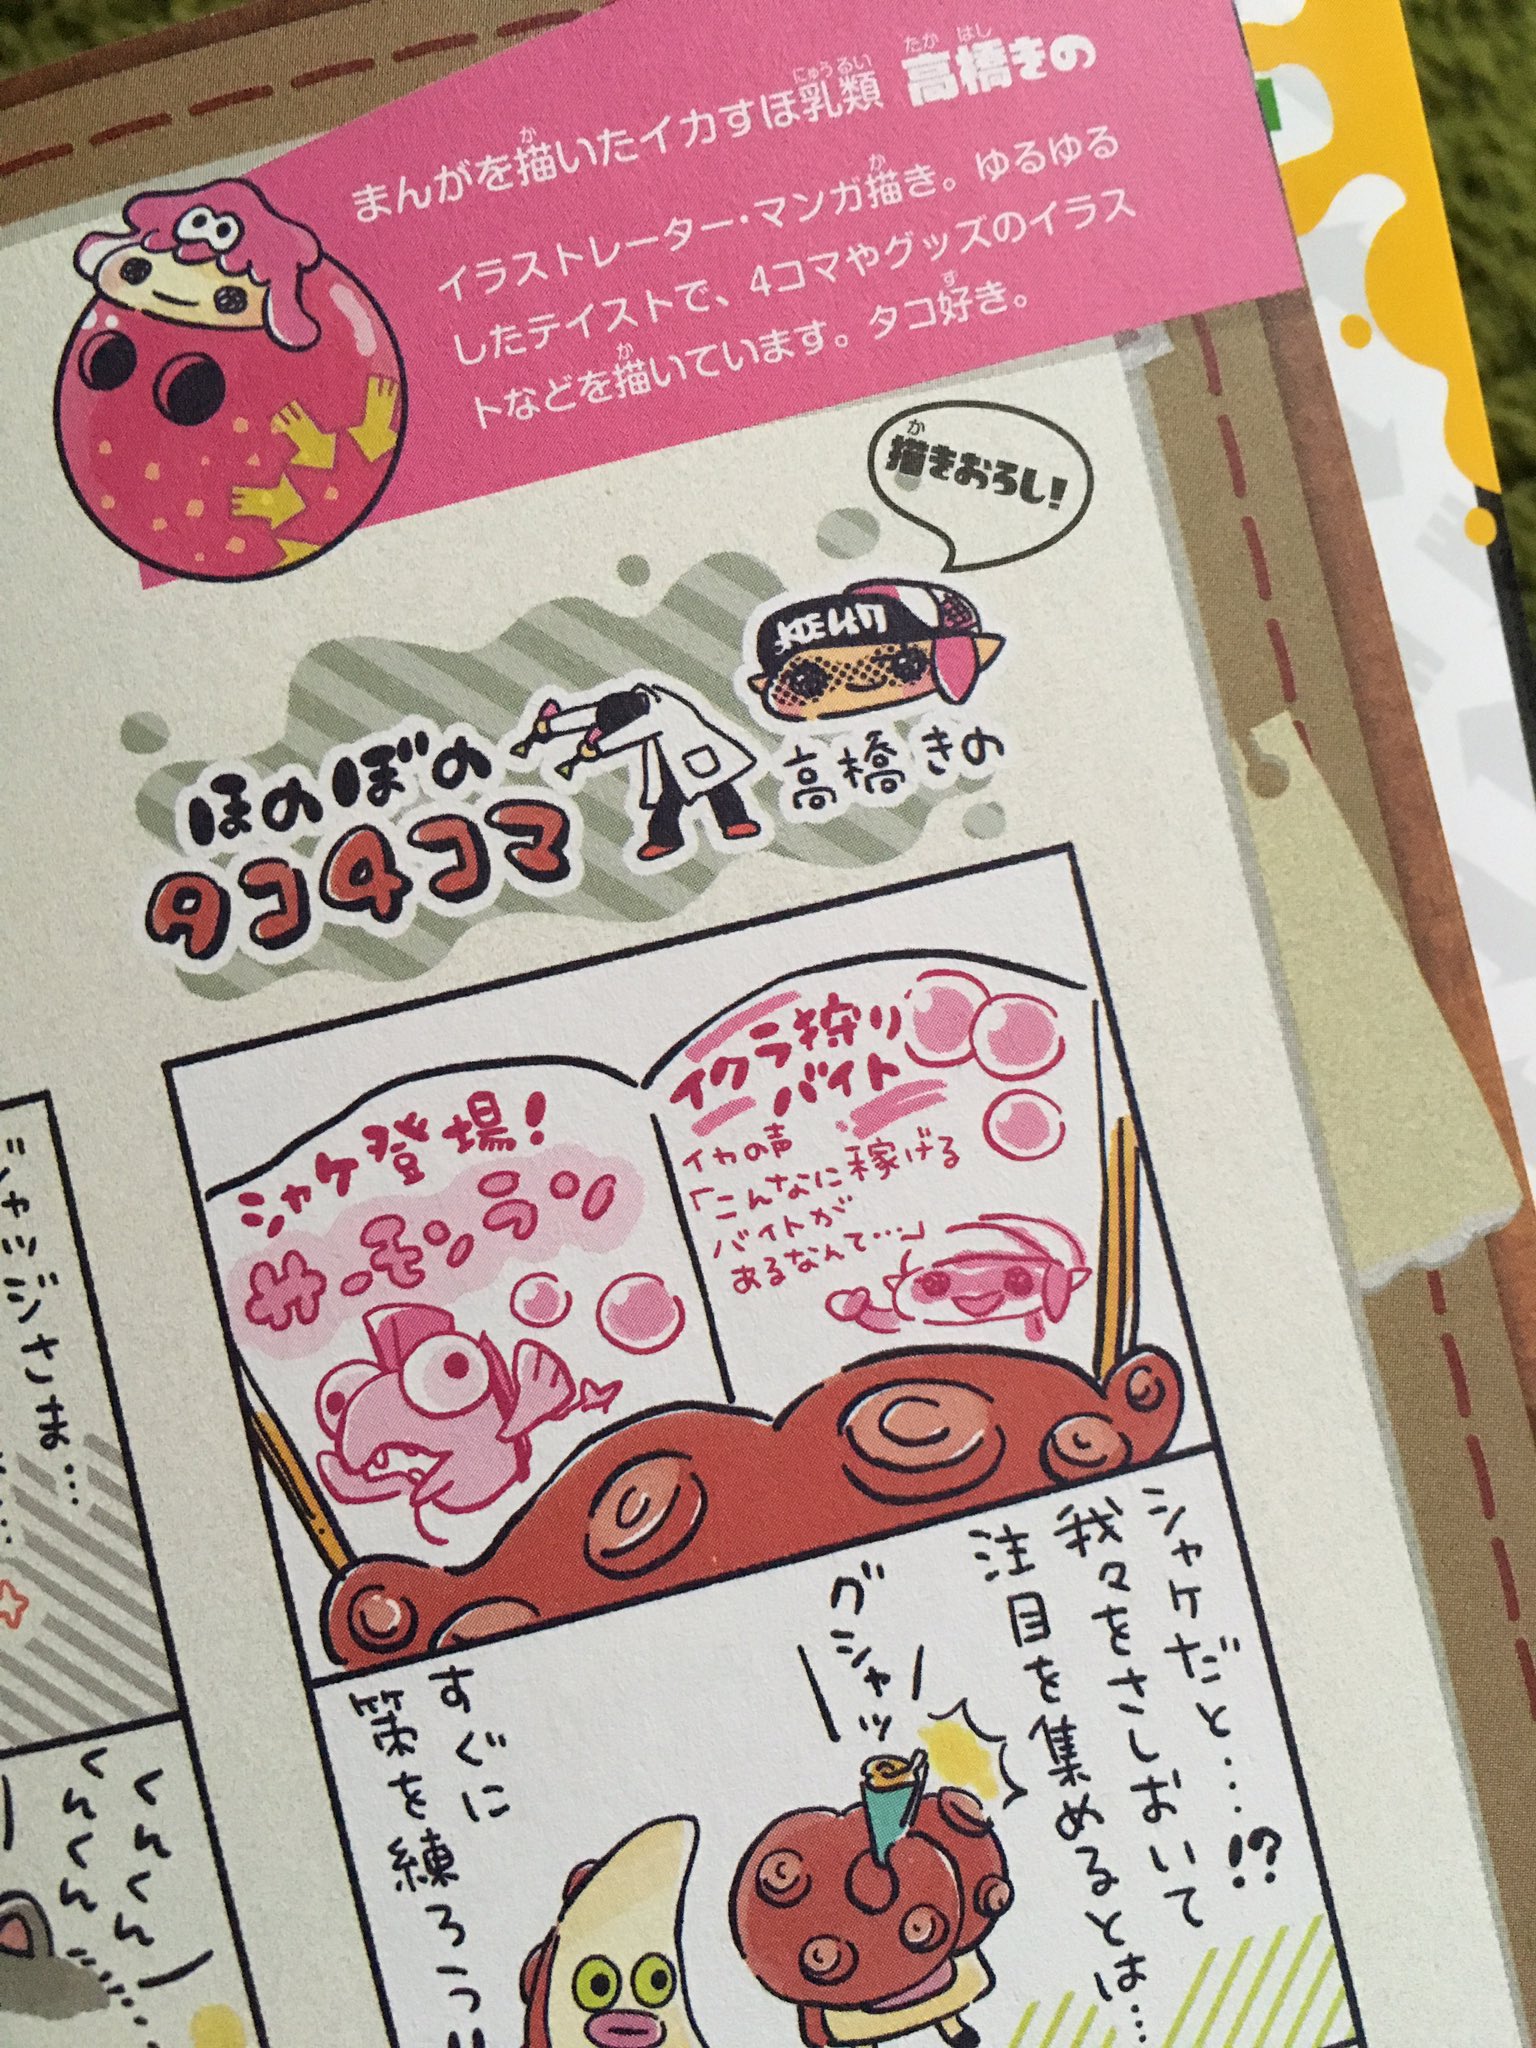 まんがを描いたイカすほ乳類 高橋きの
イラストレーター・マンガ描き。ゆるゆる
したテイストで、4コマやグッズのイラス
トなどを描いています。タコ好き。
描きおろし!
ほのぼの
タコ4コマ
高橋きの
イクラ狩り
バイト
イカの声
「こんなに稼げる
バイトが
あるなんて…」
シャケ登場!
サーモンラン
シャケだと…!?
我々をさしおいて
注目を集めるとは…
グシャッ
すぐに
策を練ろう!!
ジャッジさま…
くんくん
くんくん